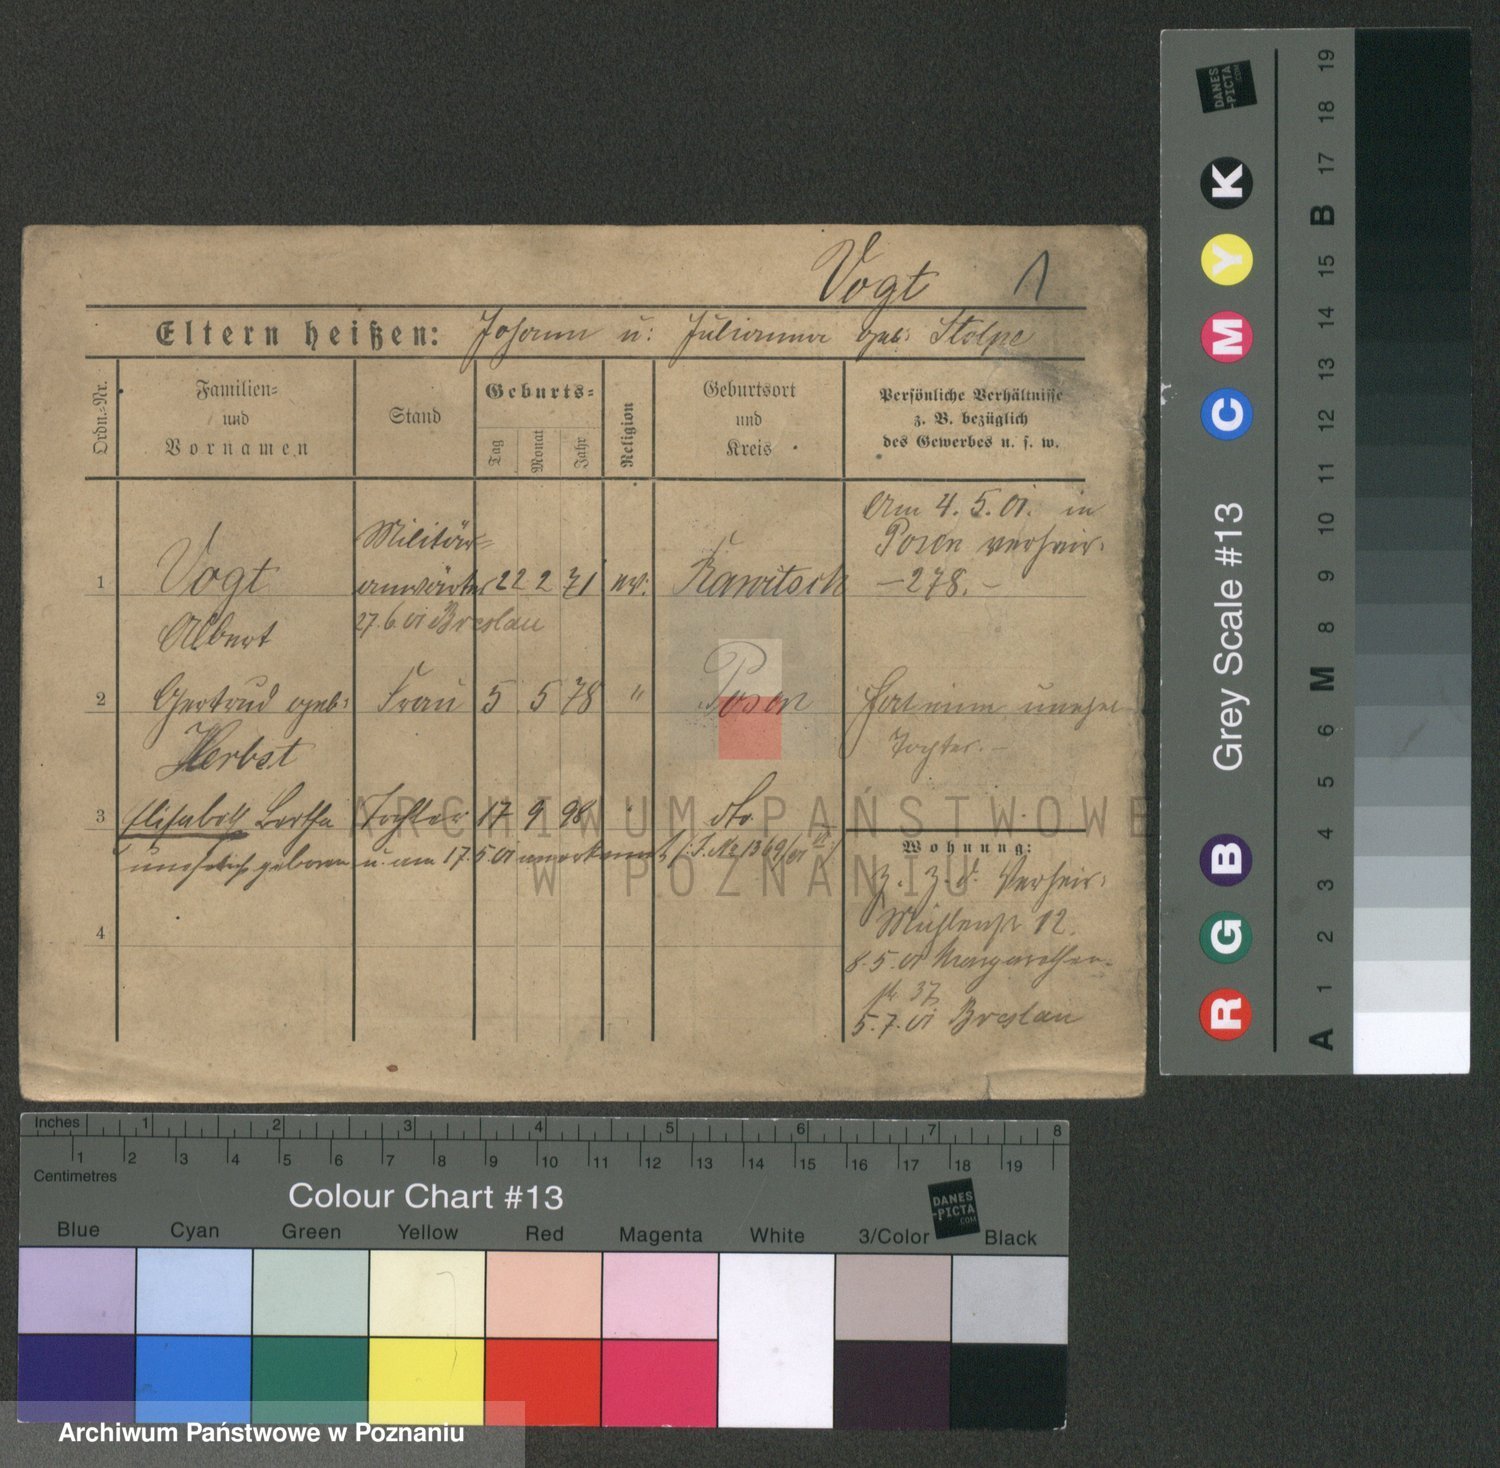 Vogt 1
Eltern heißen: Johann u: Julianna geb: Stolpe
Ordn.-Nr.
Familien-
und
Vornamen
Stand
Geburts-
Tag
Monat
Jahr
Religion
Geburtsort
und
Kreis
Persönliche Verhältnisse
z. B. bezüglich
des Gewerbes u. s. w.
Am 4. 5. 01. in
Posen verheir.
-278.-
1 Vogt Militär-
anwärter 22 2 71 ev. Rawitsch
Albert 27.6.01 Breslau
2 Gertrud geb: Frau 5 5 78 " Posen
Herbst
Hat eine unehel
Tochter.-
3 Elisabeth Bertha Tochter 17 9 98 " dto.
unehelich geboren u. am 17.5.01 anerkannt (J.No 1369/01
4
Wohnung:
z. Z. d. Verheir:
Mühlenstr 12.
8.5.01 Margarethen-
str. 37
5.7.01 Breslau
ARCHIWUM PAŃSTWOWE
W POZNANIU
DANES
-PICTA
.COM
Grey Scale #13
R G B C M Y K
A 1 2 3 4 5 6 M 8 9 10 11 12 13 14 15 B 17 18 19
Inches 1 2 3 4 5 6 7 8
1 2 3 4 5 6 7 8 9 10 11 12 13 14 15 16 17 18 19
Centimetres
Colour Chart #13
DANES
-PICTA
.COM
Blue Cyan Green Yellow Red Magenta White 3/Color Black
Archiwum Państwowe w Poznaniu